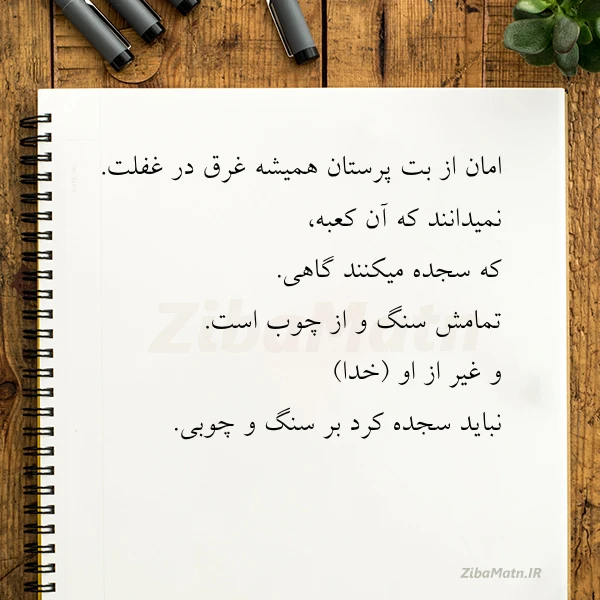 امان از بت پرستان همیشه غرق در غفلت.
نمیدانند که آن کعبه،
که سجده میکنند گاهی.
تمامش سنگ و از چوب است.
ZibaMatn
و غیر از او (خدا)
نباید سجده کرد بر سنگ و چوبی.
ZibaMatn.IR